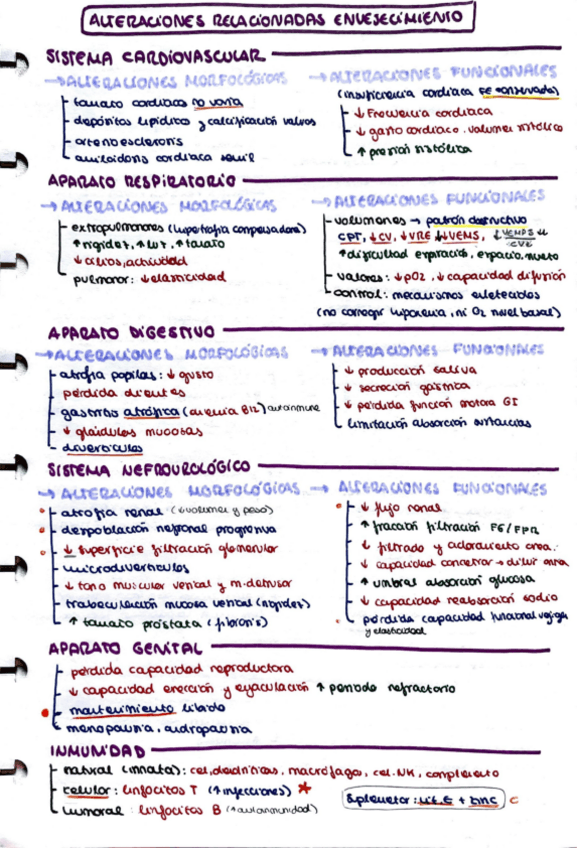 ALTERACIONES RELACIONADAS ENVEJECIMIENTO
SISTEMA CARDIOVASCULAR
→ ALTERACIONES MORFOLÓGICAS
tamaño cardiaco no varía
depósitos lipídico y calcificación valvas
arterioesclerosis
amiloidosis cardiaca senil
→ ALTERACIONES FUNCIONALES
(insuficiencia cardiaca FE conservada)
↓ frecuencia cardiaca
↓ gasto cardiaco. volumen sistólico
↑ presión sistólica
APARATO RESPIRATORIO
→ ALTERACIONES MORFOLÓGICAS
extrapulmonares (hipertrofia compensadora)
↑ rigidez, ↑ tamaño
↓ cilios, actividad
pulmonar: ↓ elasticidad
→ ALTERACIONES FUNCIONALES
volumenes → patrón obstructivo
CPT, ↓ CV, ↓ VRE ↓ VEMS, ↓ VEMS ↓
CVF
↑ dificultad espiración, espacio muerto
valores: ↓ pO2, ↓ capacidad difusión
control: mecanismos enlentecidos
(no corregir hipoxemia, ni O2 nivel basal)
APARATO DIGESTIVO
→ ALTERACIONES MORFOLÓGICAS
atrofia papilas: ↓ gusto
pérdida dientes
gastritis atrófica (anemia B12) autoinmune
↓ glándulas mucosas
divertículos
→ ALTERACIONES FUNCIONALES
↓ producción saliva
↓ secreción gástrica
↓ pérdida función motora GI
limitación absorción sustancias
SISTEMA NEFROUROLÓGICO
→ ALTERACIONES MORFOLÓGICAS
atrofia renal (↓ volumen y peso)
despoblación nefronal progresiva
↓ superficie filtración glomerular
microdivertículos
↓ tono muscular vesical y m. detrusor
trabeculación mucosa vesical (rigidez)
↑ tamaño próstata (fibrosis)
→ ALTERACIONES FUNCIONALES
↓ flujo renal
↑ fracción filtración FG/FPR
↓ filtrado y aclaramiento crea.
↓ capacidad concentrar → diluir orina
↑ umbral absorción glucosa
↓ capacidad reabsorción sodio
pérdida capacidad funcional vejiga
y elasticidad
APARATO GENITAL
pérdida capacidad reproductora
↓ capacidad erección y eyaculación ↑ periodo refractario
mantenimiento libido
menopausia, andropausia
INMUNIDAD
natural (innata): cel. dendríticas, macrófagos, cel. NK, complemento
celular: linfocitos T (↑ infecciones) ★
humoral: linfocitos B (↑ autoinmunidad)
Suplementar: vit. E + zinc